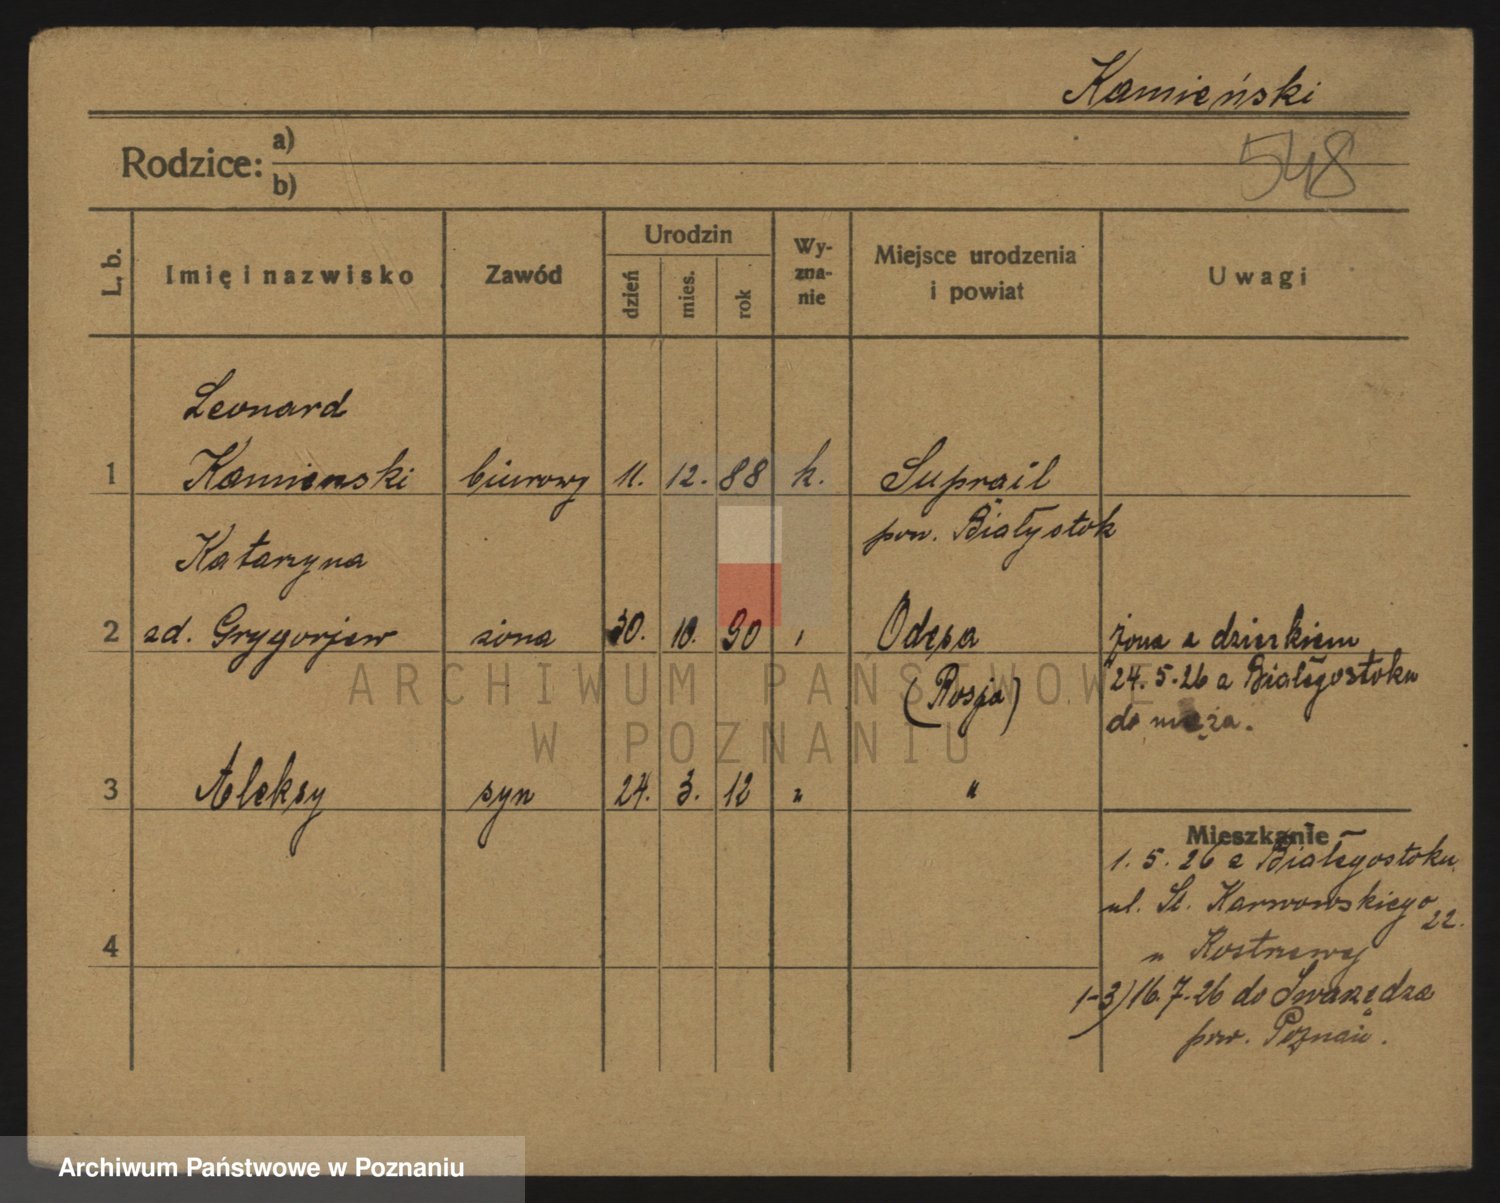 Kamieński
548
Rodzice: a)
b)
L. b.
Imię i nazwisko
Zawód
Urodzin
dzień
mies.
rok
Wy-
zna-
nie
Miejsce urodzenia
i powiat
Uwagi
Leonard
1 Kamienski biurowy 11. 12. 88 k. Supraśl
pow. Białystok
Katarzyna
2 zd. Grygorjew żona 30. 10. 90 " Odesa
(Rosja)
żona z dzieckiem
24.5.26 z Białegostoku
do męża.
3 Aleksy syn 24. 3. 12 " "
Mieszkanie
1.5.26 z Białegostoku
ul. St. Karwowskiego 22.
u Kostrzewy
4
1-3) 16.7.26 do Swarzędza
pow. Poznań.
ARCHIWUM PAŃSTWOWE
W POZNANIU
Archiwum Państwowe w Poznaniu